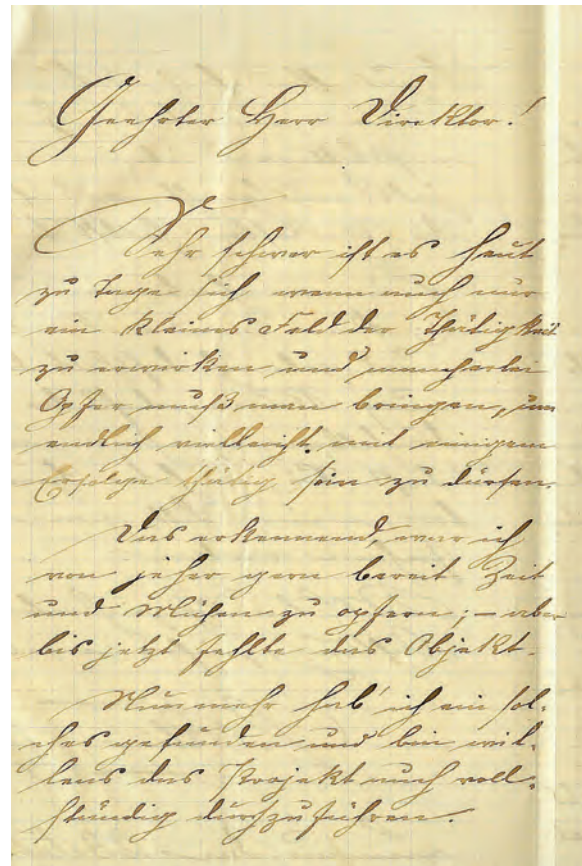 Geehrter Herr Direktor!
Sehr schwer ist es heut
zu Tage sich wenn auch nur
ein kleines Feld der Thätigkeit
zu erwirken und mancherlei
Opfer muß man bringen, um
endlich vielleicht mit einigem
Erfolge thätig sein zu dürfen.
Das erkennend, war ich
von jeher gern bereit Zeit
und Mühen zu opfern; – aber
bis jetzt fehlte das Objekt.
Nunmehr hab' ich ein sol-
ches gefunden und bin wil-
lens das Projekt auch voll-
ständig durchzuführen.